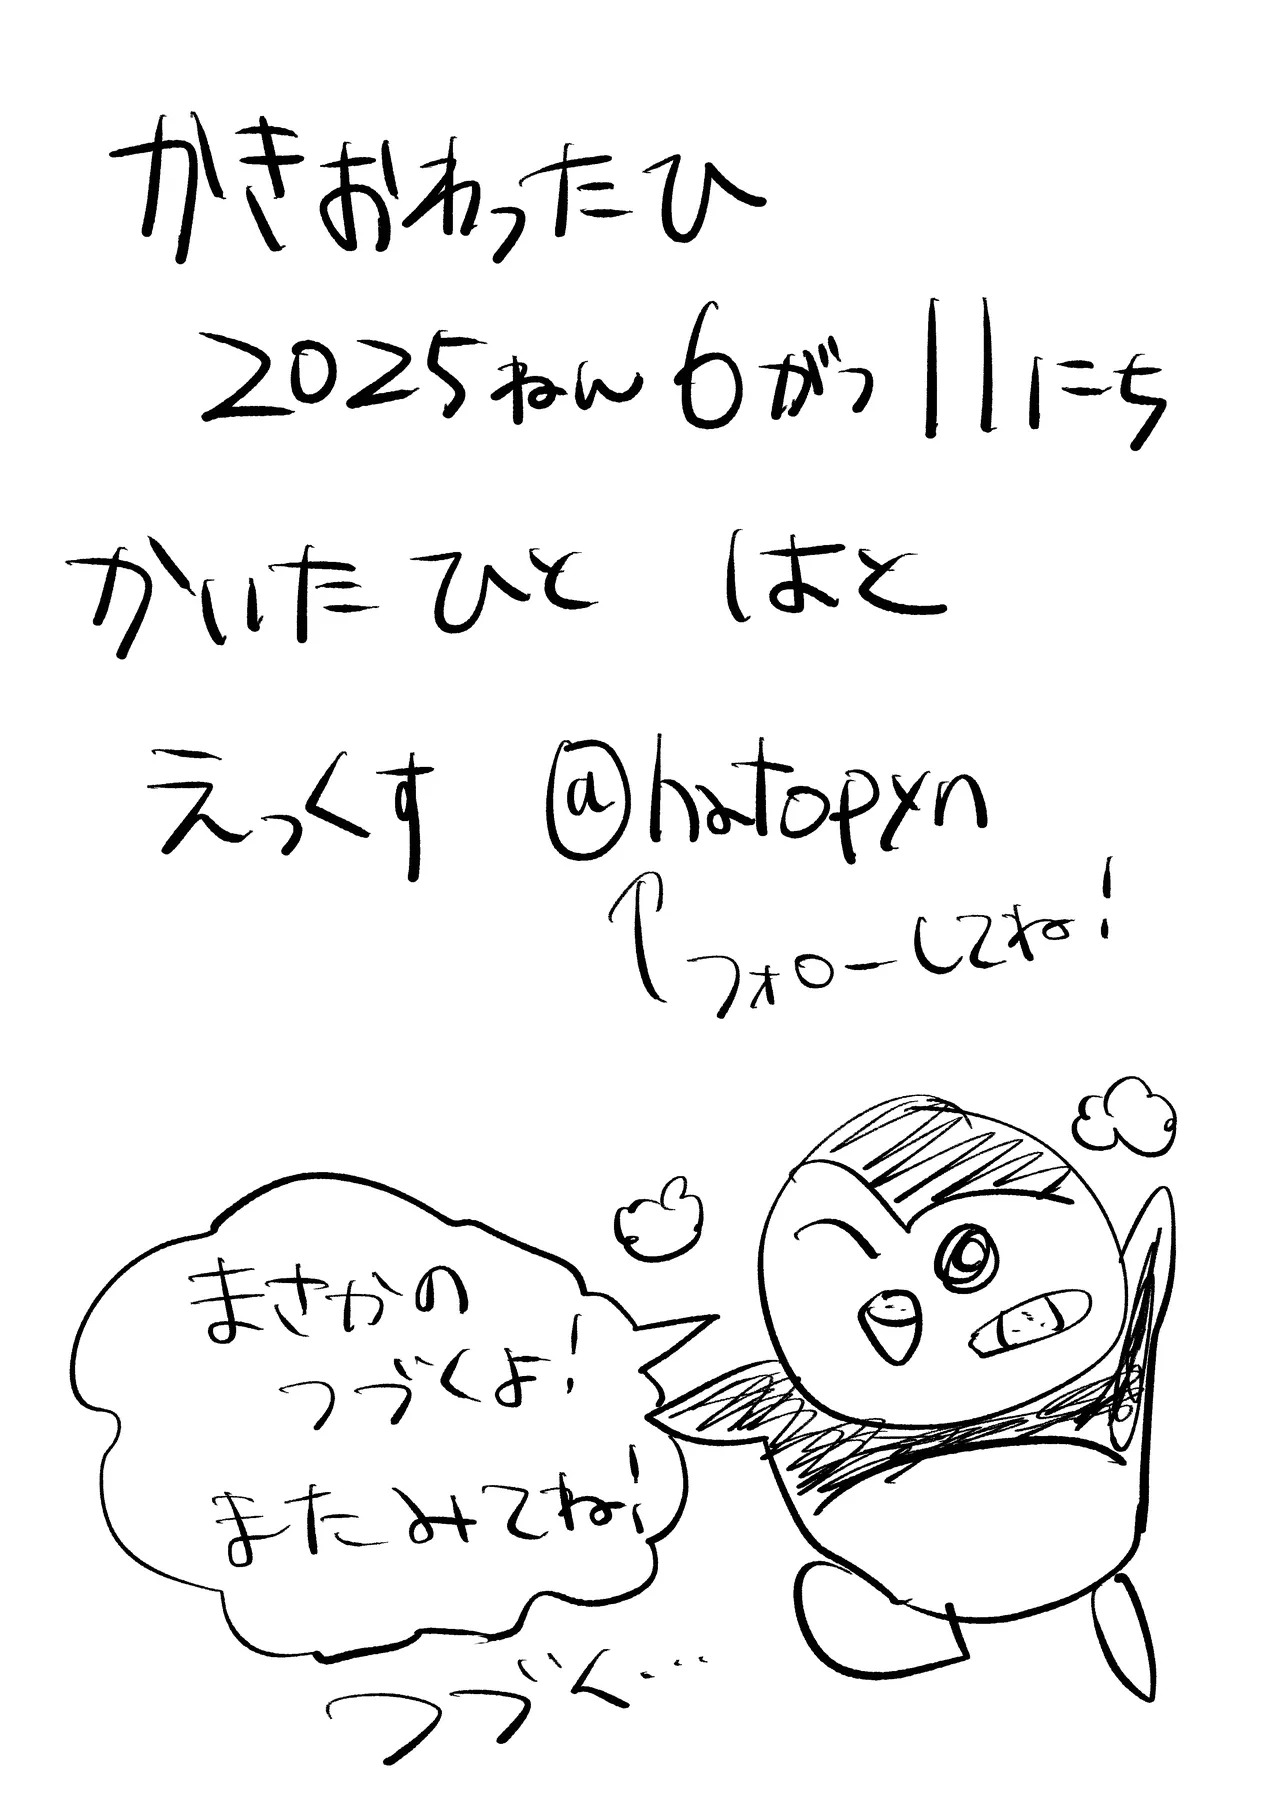 かきおわったひ
2025ねん6がつ11にち
かいたひと　はと
えっくす　@hatopyn
↑フォローしてね！
まさかの
つづくよ！
またみてね！
つづく…